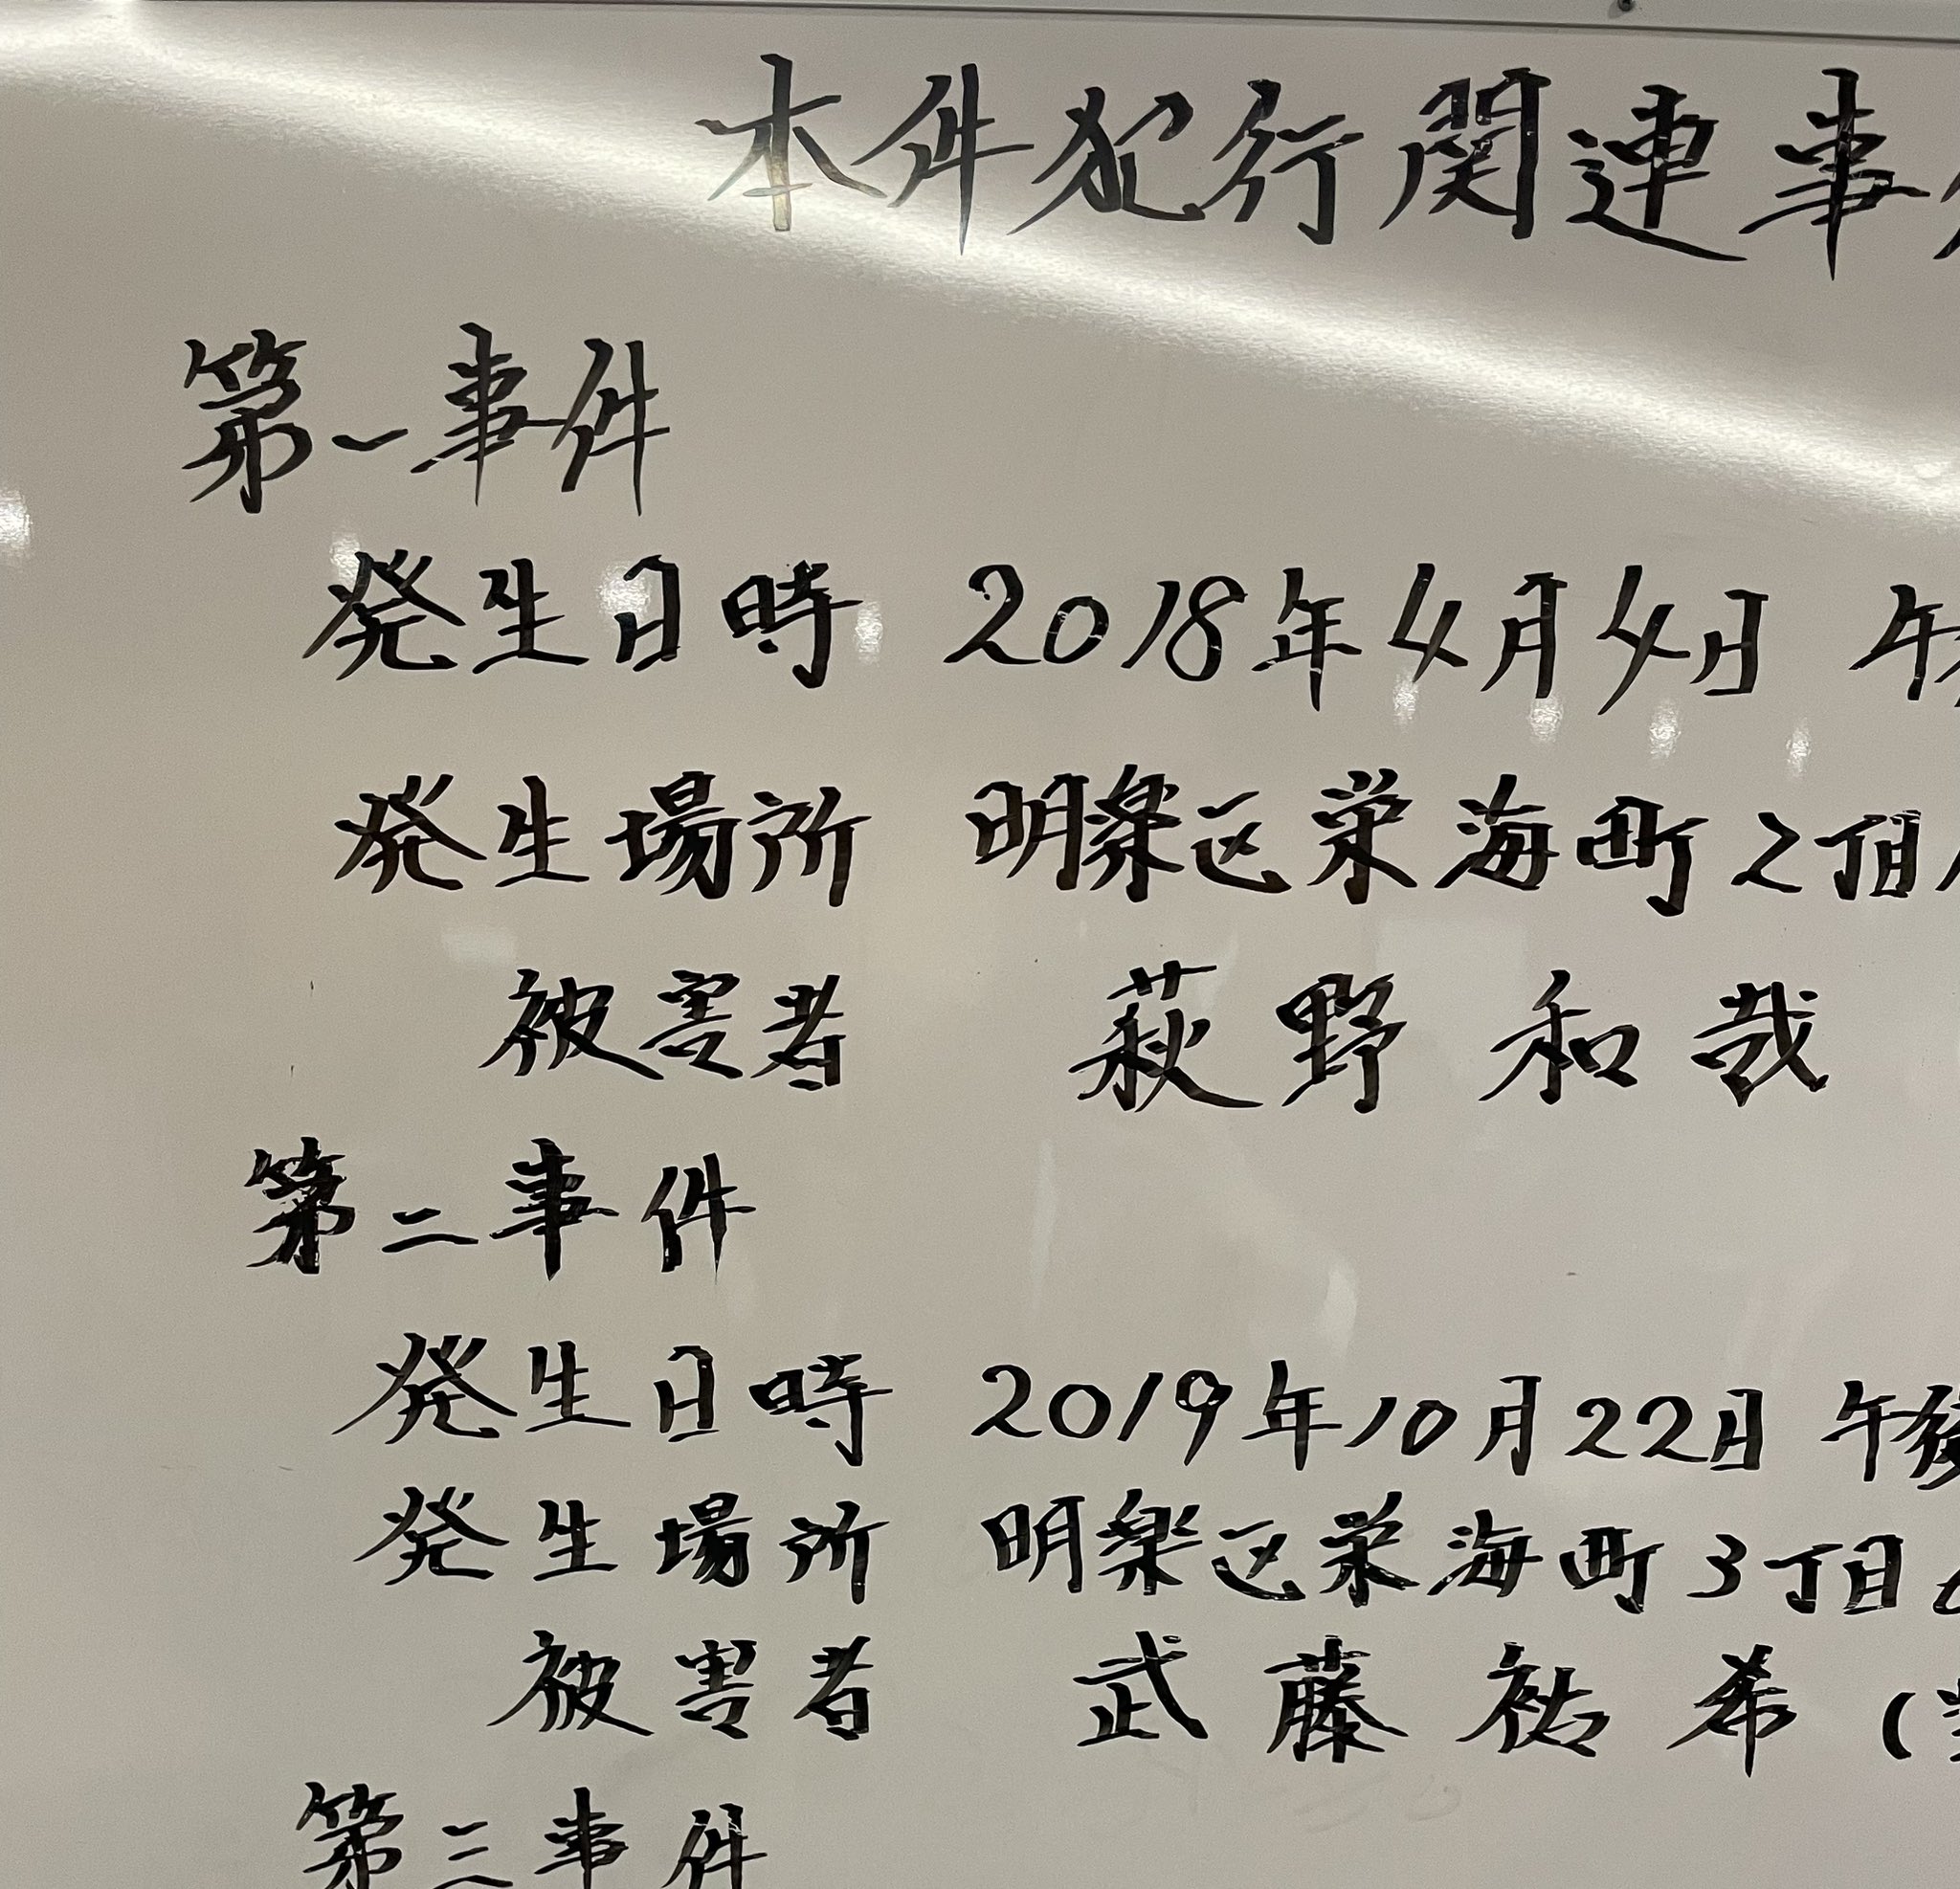 本件犯行関連事
第一事件
発生日時 2018年4月4日 午
発生場所 明楽区栄海町2丁目
被害者 萩野和哉
第二事件
発生日時 2019年10月22日 午後
発生場所 明楽区栄海町3丁目
被害者 武藤祐希(
第三事件